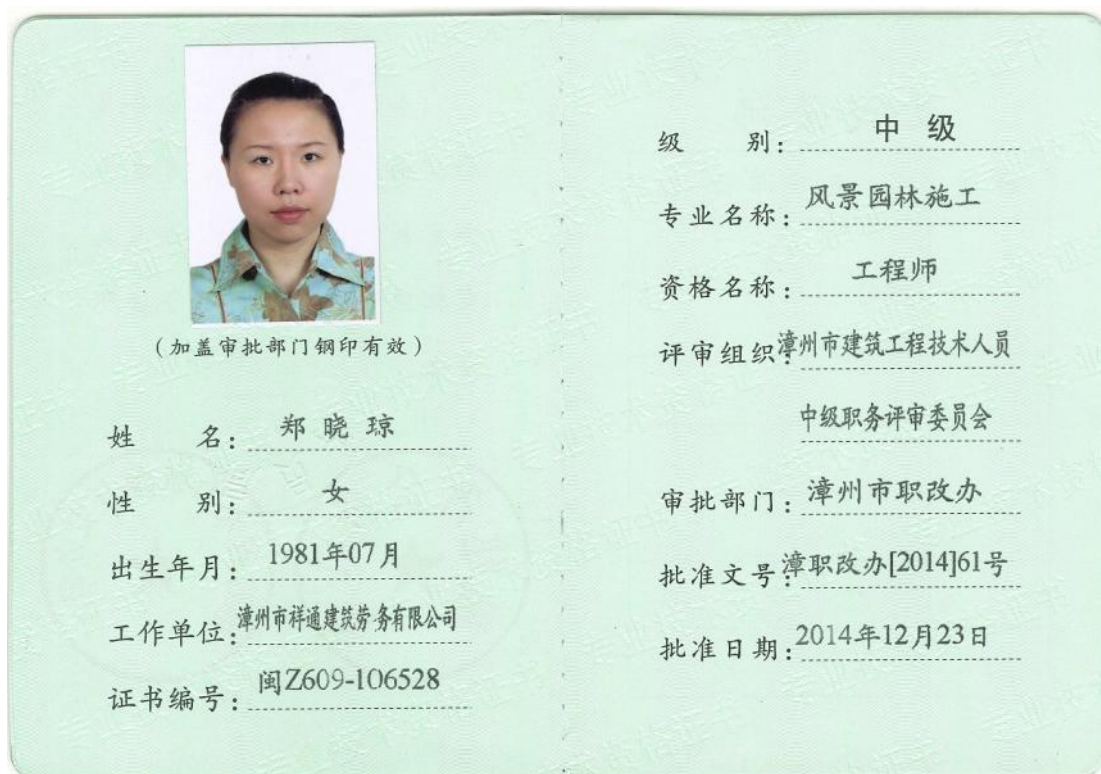 (加盖审批部门钢印有效)
姓 名: 郑晓琼
性 别: 女
出生年月: 1981年07月
工作单位: 漳州市祥通建筑劳务有限公司
证书编号: 闽Z609-106528
级 别: 中 级
专业名称: 风景园林施工
资格名称: 工程师
评审组织: 漳州市建筑工程技术人员
中级职务评审委员会
审批部门: 漳州市职改办
批准文号: 漳职改办[2014]61号
批准日期: 2014年12月23日